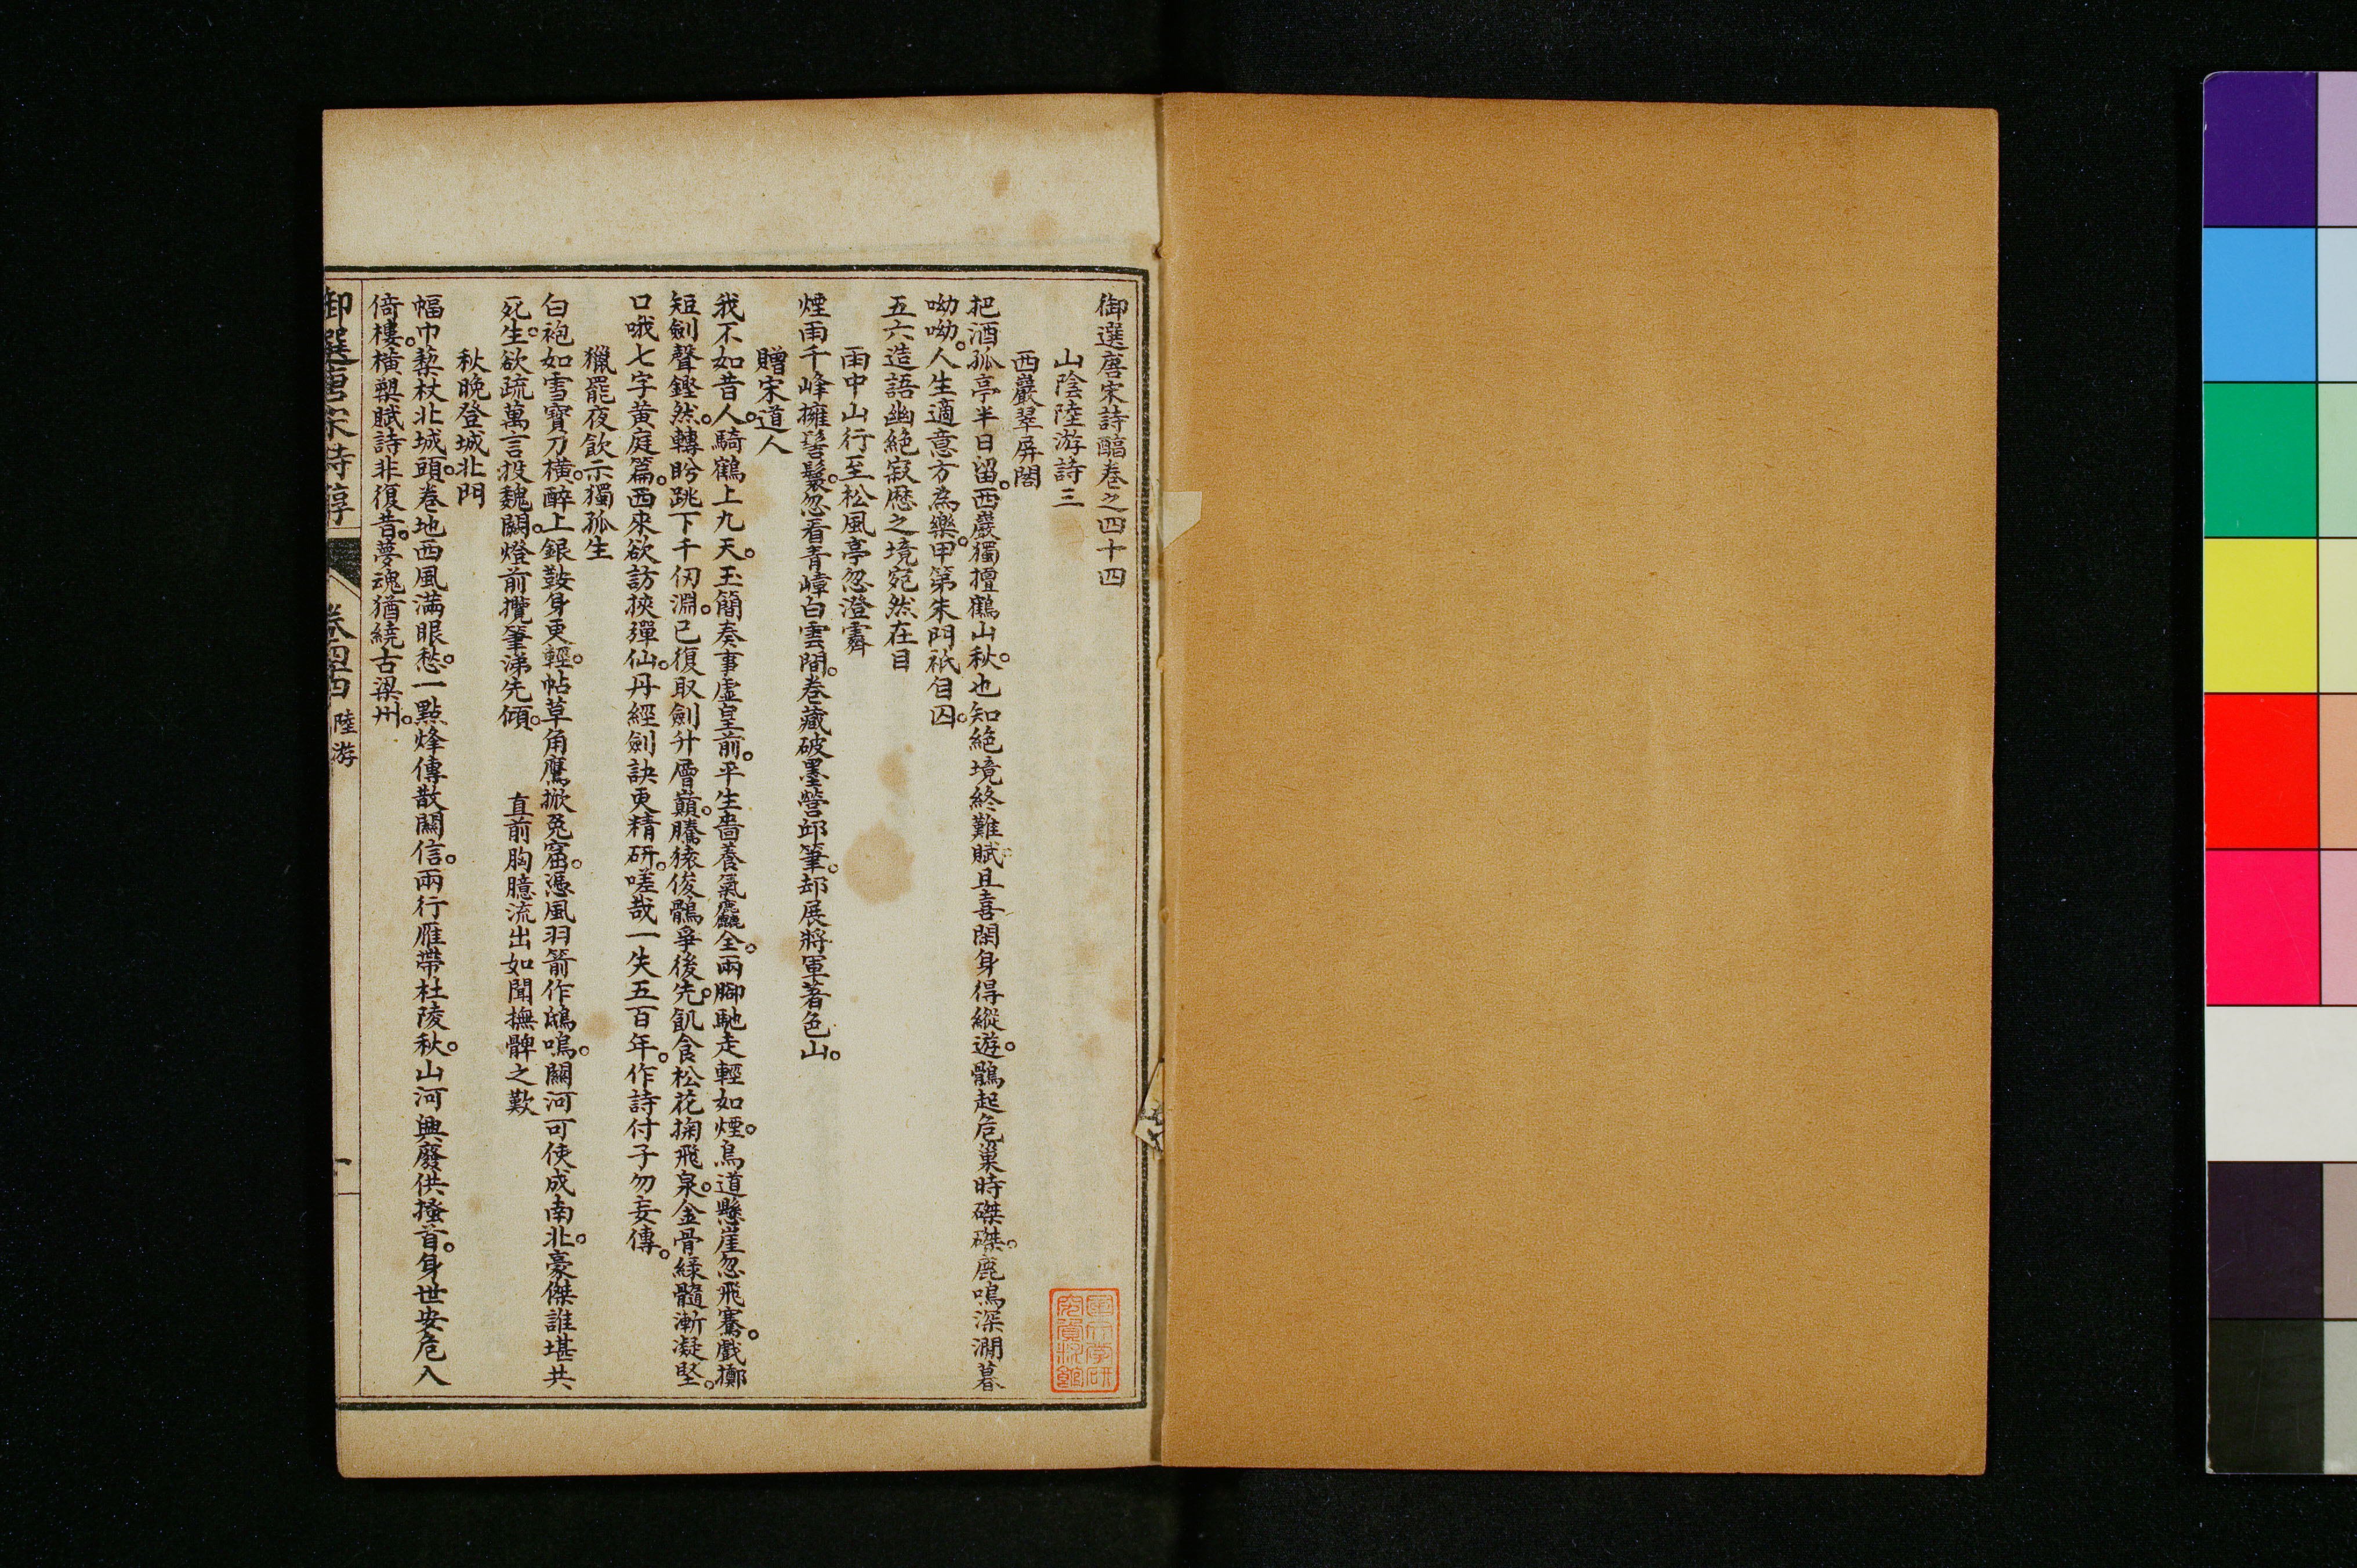 御選唐宋詩醇卷之四十四
山陰陸游詩三
西巖翠屏閣
把酒孤亭半日留。西巖獨擅鶴山秋。也知絕境終難賦。且喜閑身得縱遊。鶻起危巢時磔磔。鹿鳴深澗暮
呦呦。人生適意方為樂。甲第朱門祇自囚。
五六造語幽絕寂歷之境宛然在目
雨中山行至松風亭忽澄霽
煙雨千峰擁髻鬟。忽看青嶂白雲間。卷藏破墨營邱筆。却展將軍著色山。
贈宋道人
我不如昔人。騎鶴上九天。玉簡奏事虛皇前。平生嗇養氣麤全。兩腳馳走輕如煙。鳥道懸崖忽飛騫。戲擲
短劍聲鏗然。轉盼跳下千仞淵。已復取劍升層巔。騰猿俊鶻爭後先。飢食松花掬飛泉。金骨綠髓漸凝堅。
口哦七字黃庭篇。西來欲訪挾彈仙。丹經劍訣更精研。嗟哉一失五百年。作詩付子勿妄傳。
獵罷夜飲示獨孤生
白袍如雪寶刀橫。醉上銀鞍身更輕。帖草角鷹掀兔窟。憑風羽箭作鴟鳴。關河可使成南北。豪傑誰堪共
死生。欲疏萬言投魏闕。燈前攬筆涕先傾。 直前胸臆流出如聞撫髀之歎
秋晚登城北門
幅巾藜杖北城頭。卷地西風滿眼愁。一點烽傳散關信。兩行雁帶杜陵秋。山河興廢供搔首。身世安危入
倚樓。橫槊賦詩非復昔。夢魂猶繞古梁州。
御選唐宋詩醇 卷四十四 陸游 一